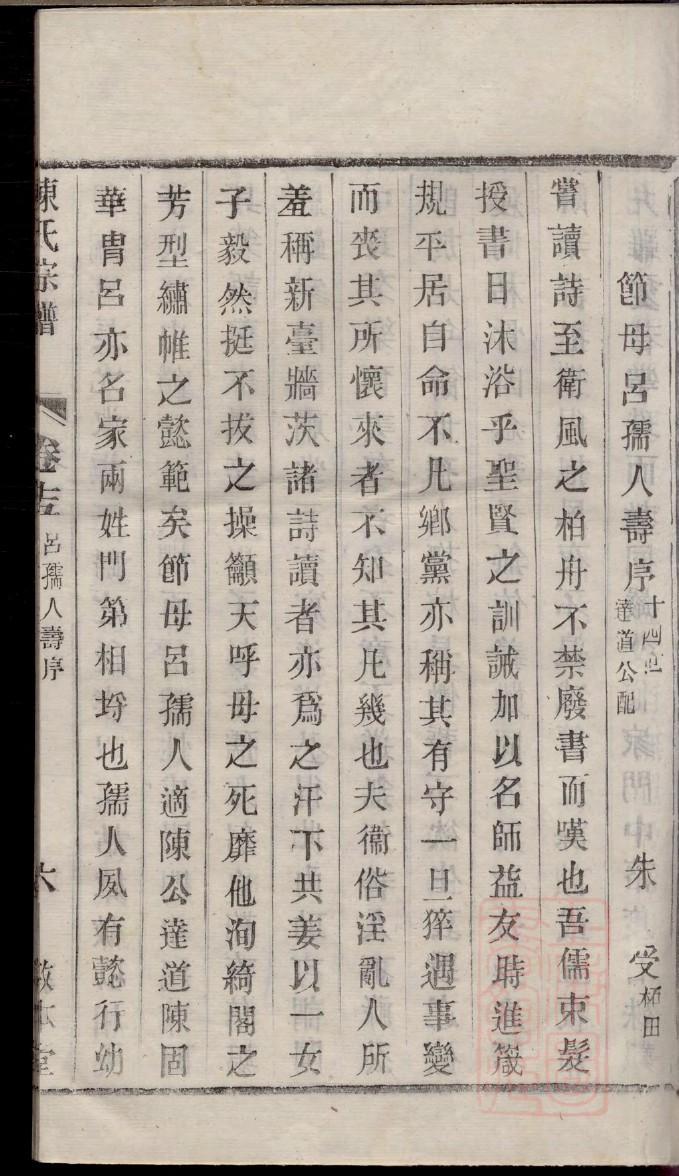 節母呂孺人壽序 十四世達道公配 朱受栢田
嘗讀詩至衛風之柏舟不禁廢書而嘆也吾儒束髮
授書日沐浴乎聖賢之訓誡加以名師益友時進箴
規平居自命不凡鄉黨亦稱其有守一旦猝遇事變
而喪其所懷來者不知其凡幾也夫衞俗淫亂人所
羞稱新臺牆茨諸詩讀者亦爲之汗下共姜以一女
子毅然挺不拔之操籲天呼母之死靡他洵綺閣之
芳型繡帷之懿範矣節母呂孺人適陳公達道陳固
華胄呂亦名家兩姓門第相埒也孺人夙有懿行幼
陳氏宗譜 卷十五 呂孺人壽序 六 敦本堂